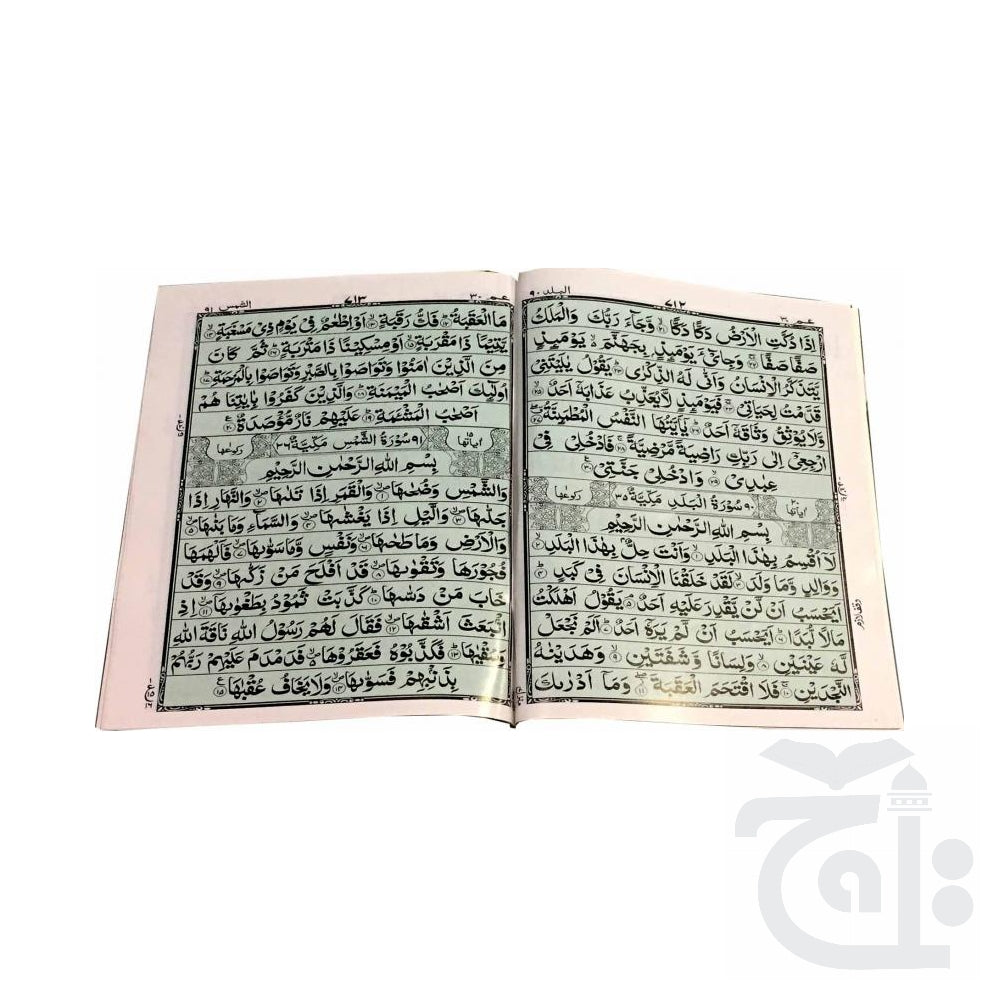 البلد ٩٠
٧١٢
عمّ ٣٠
اِذَا دُكَّتِ الْاَرْضُ دَكًّا دَكًّا ۙ﴿٢١﴾ وَّجَآءَ رَبُّكَ وَالْمَلَكُ
صَفًّا صَفًّا ۚ﴿٢٢﴾ وَجِایْٓءَ یَوْمَىِٕذٍۭ بِجَهَنَّمَ ۙ۬ یَوْمَىِٕذٍ
یَّتَذَكَّرُ الْاِنْسَانُ وَاَنّٰی لَهُ الذِّكْرٰی ؕ﴿٢٣﴾ یَقُوْلُ یٰلَیْتَنِیْ
قَدَّمْتُ لِحَیَاتِیْ ۚ﴿٢٤﴾ فَیَوْمَىِٕذٍ لَّا یُعَذِّبُ عَذَابَهٗۤ اَحَدٌ ۙ﴿٢٥﴾
وَّلَا یُوْثِقُ وَثَاقَهٗۤ اَحَدٌ ؕ﴿٢٦﴾ یٰۤاَیَّتُهَا النَّفْسُ الْمُطْمَىِٕنَّةُ ۗۖ﴿٢٧﴾
ارْجِعِیْۤ اِلٰی رَبِّكِ رَاضِیَةً مَّرْضِیَّةً ۚ﴿٢٨﴾ فَادْخُلِیْ فِیْ
عِبٰدِیْ ۙ﴿٢٩﴾ وَادْخُلِیْ جَنَّتِیْ ﴿٣٠﴾
اٰیاتها ٢٠
٩٠ سُوْرَةُ الْبَلَدِ مَكِّیَّةٌ ٣٥
ركوعها
بِسْمِ اللهِ الرَّحْمٰنِ الرَّحِیْمِ
لَاۤ اُقْسِمُ بِهٰذَا الْبَلَدِ ۙ﴿١﴾ وَاَنْتَ حِلٌّۢ بِهٰذَا الْبَلَدِ ۙ﴿٢﴾
وَوَالِدٍ وَّمَا وَلَدَ ۙ﴿٣﴾ لَقَدْ خَلَقْنَا الْاِنْسَانَ فِیْ كَبَدٍ ؕ﴿٤﴾
اَیَحْسَبُ اَنْ لَّنْ یَّقْدِرَ عَلَیْهِ اَحَدٌ ۘ﴿٥﴾ یَقُوْلُ اَهْلَكْتُ
مَالًا لُّبَدًا ؕ﴿٦﴾ اَیَحْسَبُ اَنْ لَّمْ یَرَهٗۤ اَحَدٌ ؕ﴿٧﴾ اَلَمْ نَجْعَلْ
لَّهٗ عَیْنَیْنِ ۙ﴿٨﴾ وَلِسَانًا وَّشَفَتَیْنِ ۙ﴿٩﴾ وَهَدَیْنٰهُ
النَّجْدَیْنِ ۚ﴿١٠﴾ فَلَا اقْتَحَمَ الْعَقَبَةَ ؗۖ﴿١١﴾ وَمَاۤ اَدْرٰىكَ
وقف لازم
الشمس ٩١
٧١٣
عمّ ٣٠
مَا الْعَقَبَةُ ؕ﴿١٢﴾ فَكُّ رَقَبَةٍ ۙ﴿١٣﴾ اَوْ اِطْعٰمٌ فِیْ یَوْمٍ ذِیْ مَسْغَبَةٍ ۙ﴿١٤﴾
یَّتِیْمًا ذَا مَقْرَبَةٍ ۙ﴿١٥﴾ اَوْ مِسْكِیْنًا ذَا مَتْرَبَةٍ ؕ﴿١٦﴾ ثُمَّ كَانَ
مِنَ الَّذِیْنَ اٰمَنُوْا وَتَوَاصَوْا بِالصَّبْرِ وَتَوَاصَوْا بِالْمَرْحَمَةِ ؕ﴿١٧﴾
اُولٰٓىِٕكَ اَصْحٰبُ الْمَیْمَنَةِ ؕ﴿١٨﴾ وَالَّذِیْنَ كَفَرُوْا بِاٰیٰتِنَا هُمْ
اَصْحٰبُ الْمَشْـَٔمَةِ ؕ﴿١٩﴾ عَلَیْهِمْ نَارٌ مُّؤْصَدَةٌ ﴿٢٠﴾
اٰیاتها ١٥
٩١ سُوْرَةُ الشَّمْسِ مَكِّیَّةٌ ٢٦
ركوعها
بِسْمِ اللهِ الرَّحْمٰنِ الرَّحِیْمِ
وَالشَّمْسِ وَضُحٰىهَا ۪ۙ﴿١﴾ وَالْقَمَرِ اِذَا تَلٰىهَا ۪ۙ﴿٢﴾ وَالنَّهَارِ اِذَا
جَلّٰىهَا ۪ۙ﴿٣﴾ وَالَّیْلِ اِذَا یَغْشٰىهَا ۪ۙ﴿٤﴾ وَالسَّمَآءِ وَمَا بَنٰىهَا ۪ۙ﴿٥﴾
وَالْاَرْضِ وَمَا طَحٰىهَا ۪ۙ﴿٦﴾ وَنَفْسٍ وَّمَا سَوّٰىهَا ۪ۙ﴿٧﴾ فَاَلْهَمَهَا
فُجُوْرَهَا وَتَقْوٰىهَا ۪ۙ﴿٨﴾ قَدْ اَفْلَحَ مَنْ زَكّٰىهَا ۪ۙ﴿٩﴾ وَقَدْ
خَابَ مَنْ دَسّٰىهَا ؕ﴿١٠﴾ كَذَّبَتْ ثَمُوْدُ بِطَغْوٰىهَاۤ ۪ۙ﴿١١﴾ اِذِ
انْۢبَعَثَ اَشْقٰىهَا ۪ۙ﴿١٢﴾ فَقَالَ لَهُمْ رَسُوْلُ اللهِ نَاقَةَ اللهِ
وَسُقْیٰهَا ؕ﴿١٣﴾ فَكَذَّبُوْهُ فَعَقَرُوْهَا ۪ۙ فَدَمْدَمَ عَلَیْهِمْ رَبُّهُمْ
بِذَنْۢبِهِمْ فَسَوّٰىهَا ۪ۙ﴿١٤﴾ وَلَا یَخَافُ عُقْبٰهَا ﴿١٥﴾